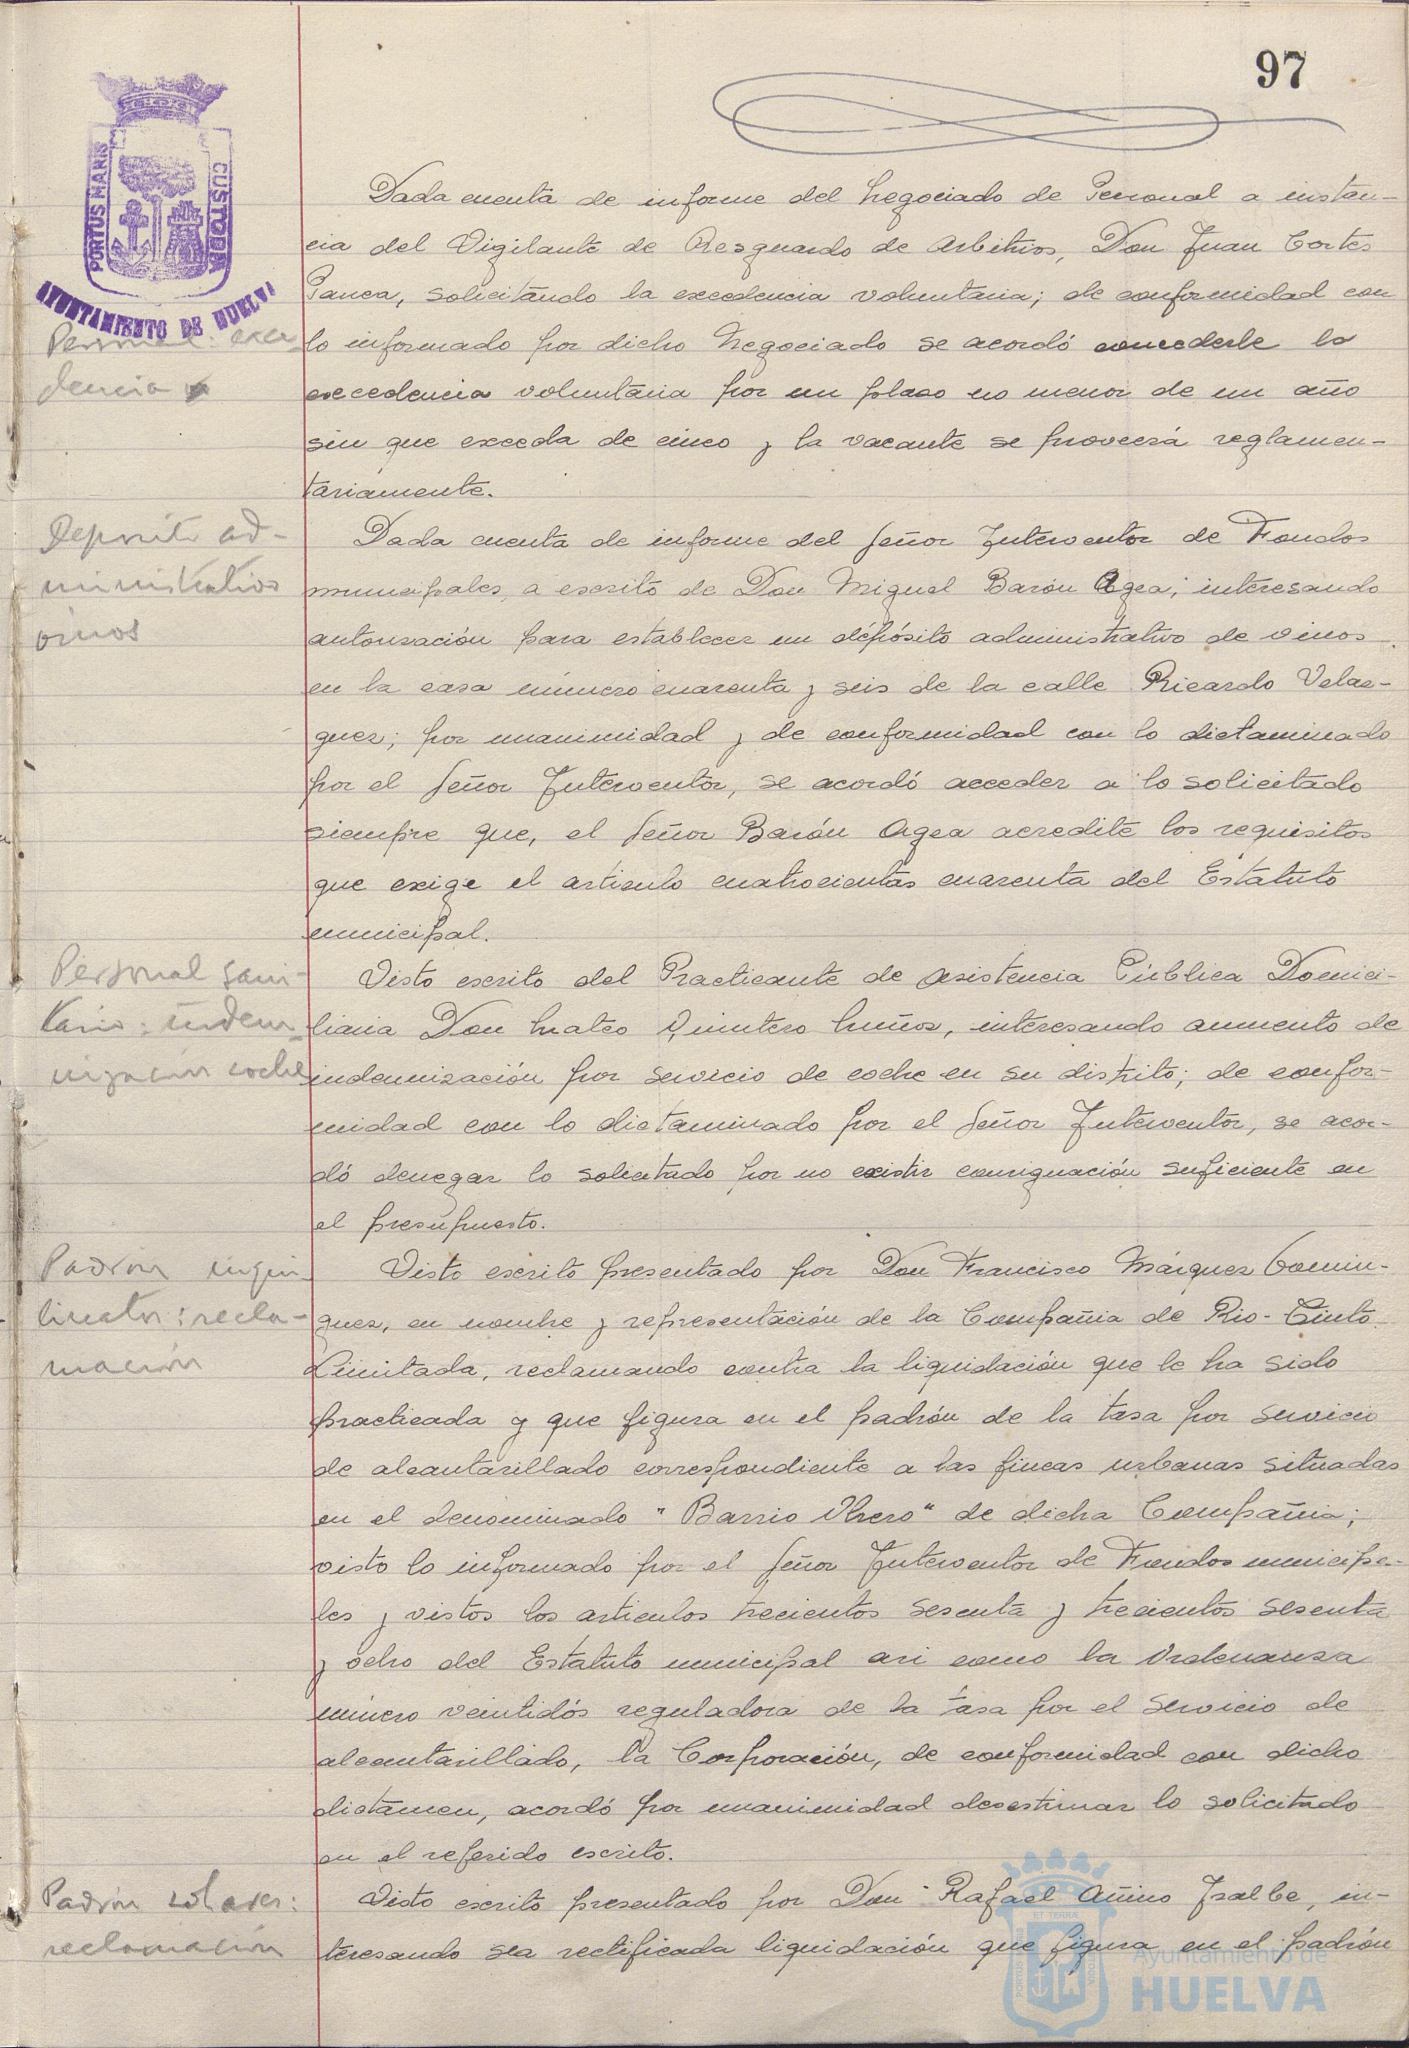 97
PORTUS MARIS
CUSTODIA
AYUNTAMIENTO DE HUELVA
Dada cuenta de informe del Negociado de Personal a instan-
cia del Vigilante de Resguardo de Arbitrios, Don Juan Cortes
Ponea, solicitando la excedencia voluntaria; de conformidad con
Personal: exce-
lo informado por dicho Negociado se acordó concederle la
dencia
excedencia voluntaria por un plaso no menor de un año
sin que exceda de cinco y la vacante se proveerá reglamen-
tariamente.
Deposito ad-
Dada cuenta de informe del Señor Interventor de Fondos
ministrativo
municipales, a escrito de Don Miguel Barón Agea; interesando
vinos
autorización para establecer un depósito administrativo de vinos
en la casa número cuarenta y seis de la calle Ricardo Velaz-
quez; por unanimidad y de conformidad con lo dictaminado
por el Señor Interventor, se acordó acceder a lo solicitado
siempre que, el Señor Barón Agea acredite los requisitos
que exige el articulo cuatrocientos cuarenta del Estatuto
municipal.
Personal sani-
Visto escrito del Practicante de Asistencia Pública Domici-
tario: indem-
liaria Don Mateo Quintero Muñoz, interesando aumento de
nización coche
indemnización por servicio de coche en su distrito; de confor-
midad con lo dictaminado por el Señor Interventor, se acor-
dó denegar lo solicitado por no existir consignación suficiente en
el presupuesto.
Padrón inqui-
Visto escrito presentado por Don Francisco Márquez Domin-
linatos: recla-
guez, en nombre y representación de la Compañia de Rio-Tinto
mación
Limitada, reclamando contra la liquidación que le ha sido
practicada y que figura en el padrón de la tasa por servicio
de alcantarillado correspondiente a las fincas urbanas situadas
en el denominado "Barrio Obrero" de dicha Compañia;
visto lo informado por el Señor Interventor de Fondos municipa-
les y vistos los articulos trecientos sesenta y trecientos sesenta
y ocho del Estatuto municipal asi como la Ordenanza
número veintidós reguladora de la tasa por el servicio de
alcantarillado, la Corporación, de conformidad con dicho
dictamen, acordó por unanimidad desestimar lo solicitado
en el referido escrito.
Padrón solares:
Visto escrito presentado por Don Rafael Añino Ysalbe, in-
reclamación
teresando sea rectificada liquidación que figura en el padrón
Ayuntamiento de
HUELVA